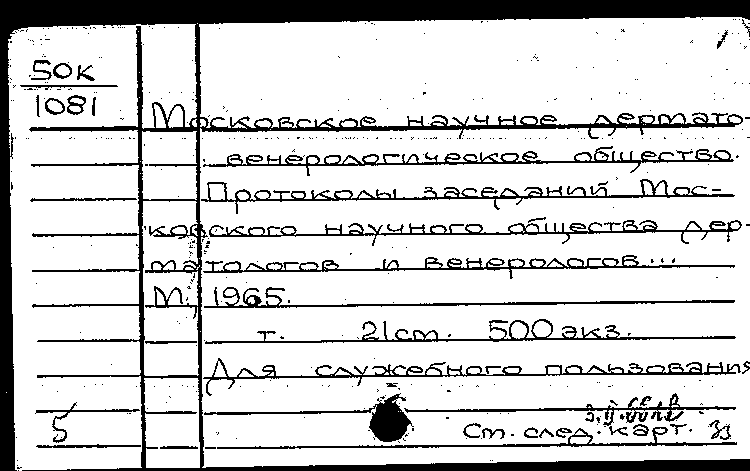 50К
1081
Московское научное дермато-
венерологическое общество.
Протоколы заседаний Мос-
ковского научного общества дер-
матологов и венерологов...
М., 1965.
т. 21 ст. 500 экз.
Для служебного пользования
5 Ст. след. карт.